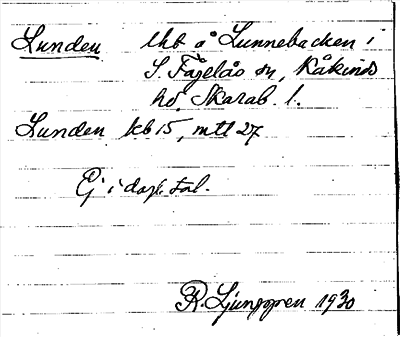 Lunden lht å Lunnebacken i
S. Fågelås sn, Kåkinds
hd, Skarab. l.
Lunden kb 15, mtl 27
Ej i dagl. tal.
R. Ljunggren 1930